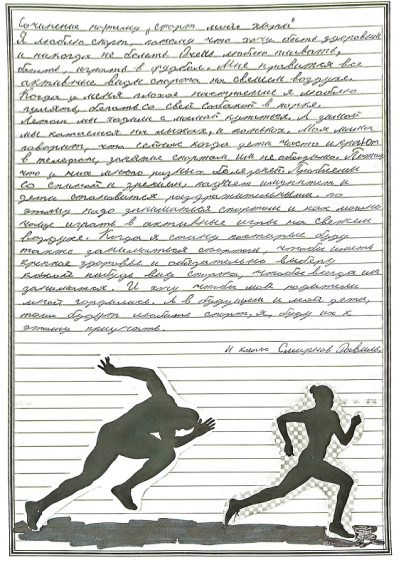 Сочинение на тему „Спорт
Я люблю спорт, потому что хочу быть здоровым
и никогда не болеть. Очень люблю плавать,
бегать, играть в футбол. Мне нравится все
активные виды спорта на свежем воздухе.
Когда у меня плохое настроение я люблю
гулять, бегать со своей собакой в парке.
Летом мы ходим с мамой купаться. А зимой
мы катаемся на лыжах, и коньках. Моя мама
говорит, что сейчас когда дети часто играют
в телефон, занятие спортом им необходимо. Потому
что у них много разных болезней. Проблемы
со спиной и зрением, падает иммунитет и
дети становятся раздражительными. по
этому надо заниматься спортом и как можно
чаще играть в активные игры на свежем
воздухе. Когда я стану постарше буду
также заниматься спортом, чтобы иметь
крепкое здоровье и обязательно выберу
какой нибудь вид спорта, чтобы всегда им
заниматься. И хочу чтобы мои родители
мной гордились. А в будущем и мои дети,
тоже будут любить спорт, я, буду их к
этому приучать.
класс Смирнов